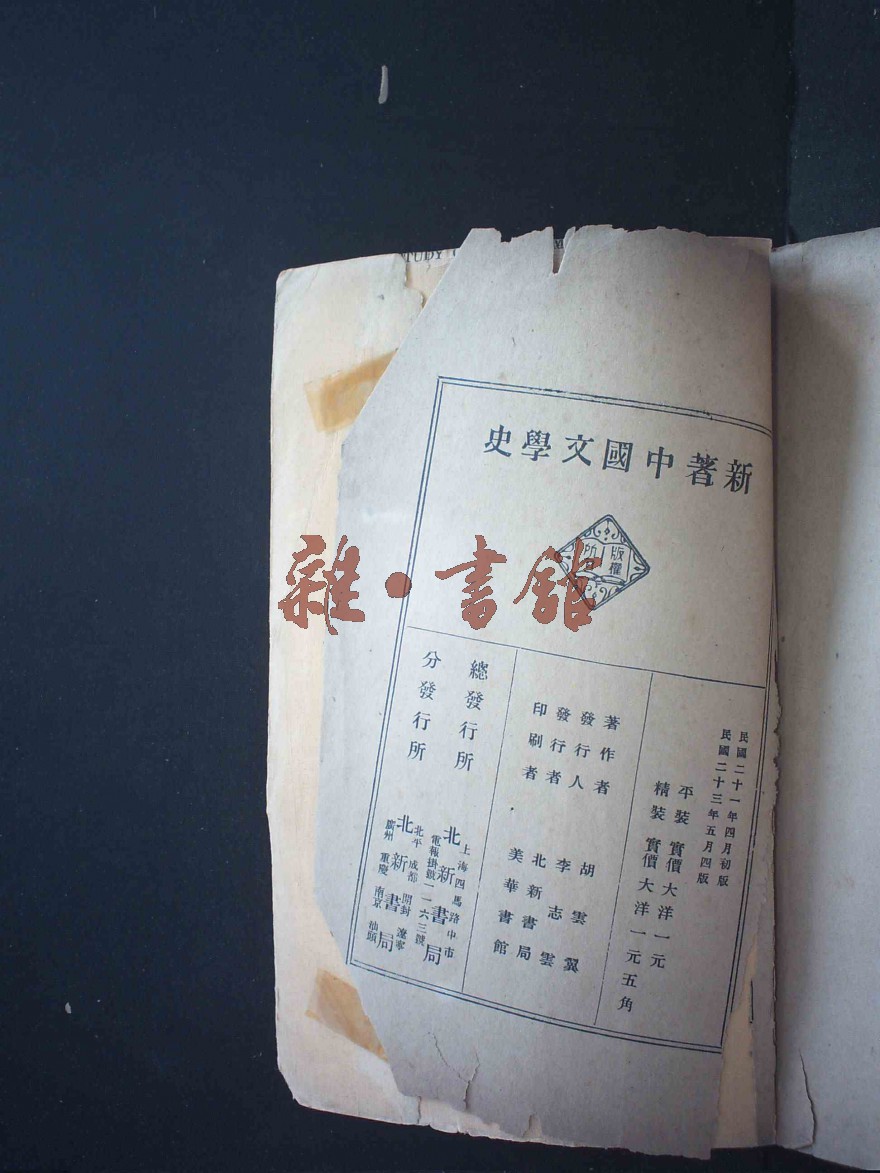 TUDY
新著中國文學史
版權
所
雜·書館
民國二十一年四月初版
民國二十三年五月四版
平裝 實價大洋一元
精裝 實價大洋一元五角
著作者 胡雲翼
發行人 李志雲
發行者 北新書局
印刷者 美華書館
總發行所 上海四馬路中市 北新書局 電報掛號一一六三號
分發行所 北平 成都 開封 遼寧 北新書局 廣州 重慶 南京 汕頭